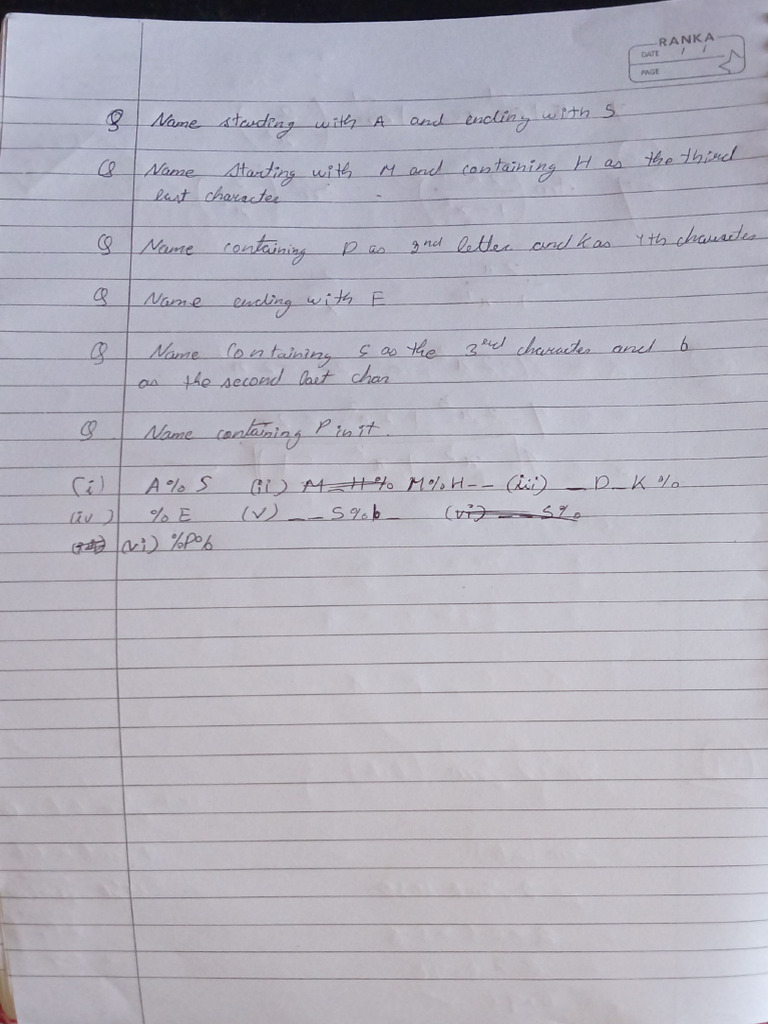 RANKA
DATE / /
PAGE
Q Name starting with A and ending with S
Q Name starting with M and containing H as the third
last character
Q Name containing D as 2nd letter and K as 4th character
Q Name ending with E
Q Name Containing S as the 3rd character and b
as the second last char
Q. Name containing P in it.
(i) A%S (ii) M_H% M%H-- (iii) _D_K%
(iv) %E (v) __S%b_ (vi) __S%
(vi) %P%